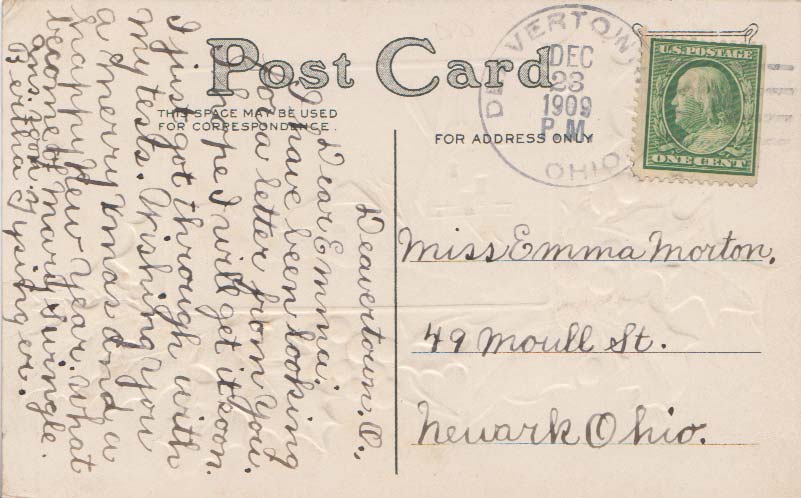 Post Card
THIS SPACE MAY BE USED
FOR CORRESPONDENCE.
FOR ADDRESS ONLY
DEAVERTOWN
DEC
23
1909
P.M.
OHIO
U.S. POSTAGE
ONE CENT
Miss Emma Morton,
49 Moull St.
Newark Ohio.
Deavertown, O.,
Dear Emma:
I have been looking
for a letter from you.
I hope I will get it soon.
I just got through with
my tests. Wishing you
a merry Xmas and a
happy New Year. what
become of Mary Swingle.
ans. soon.
Bertha Tysinger.